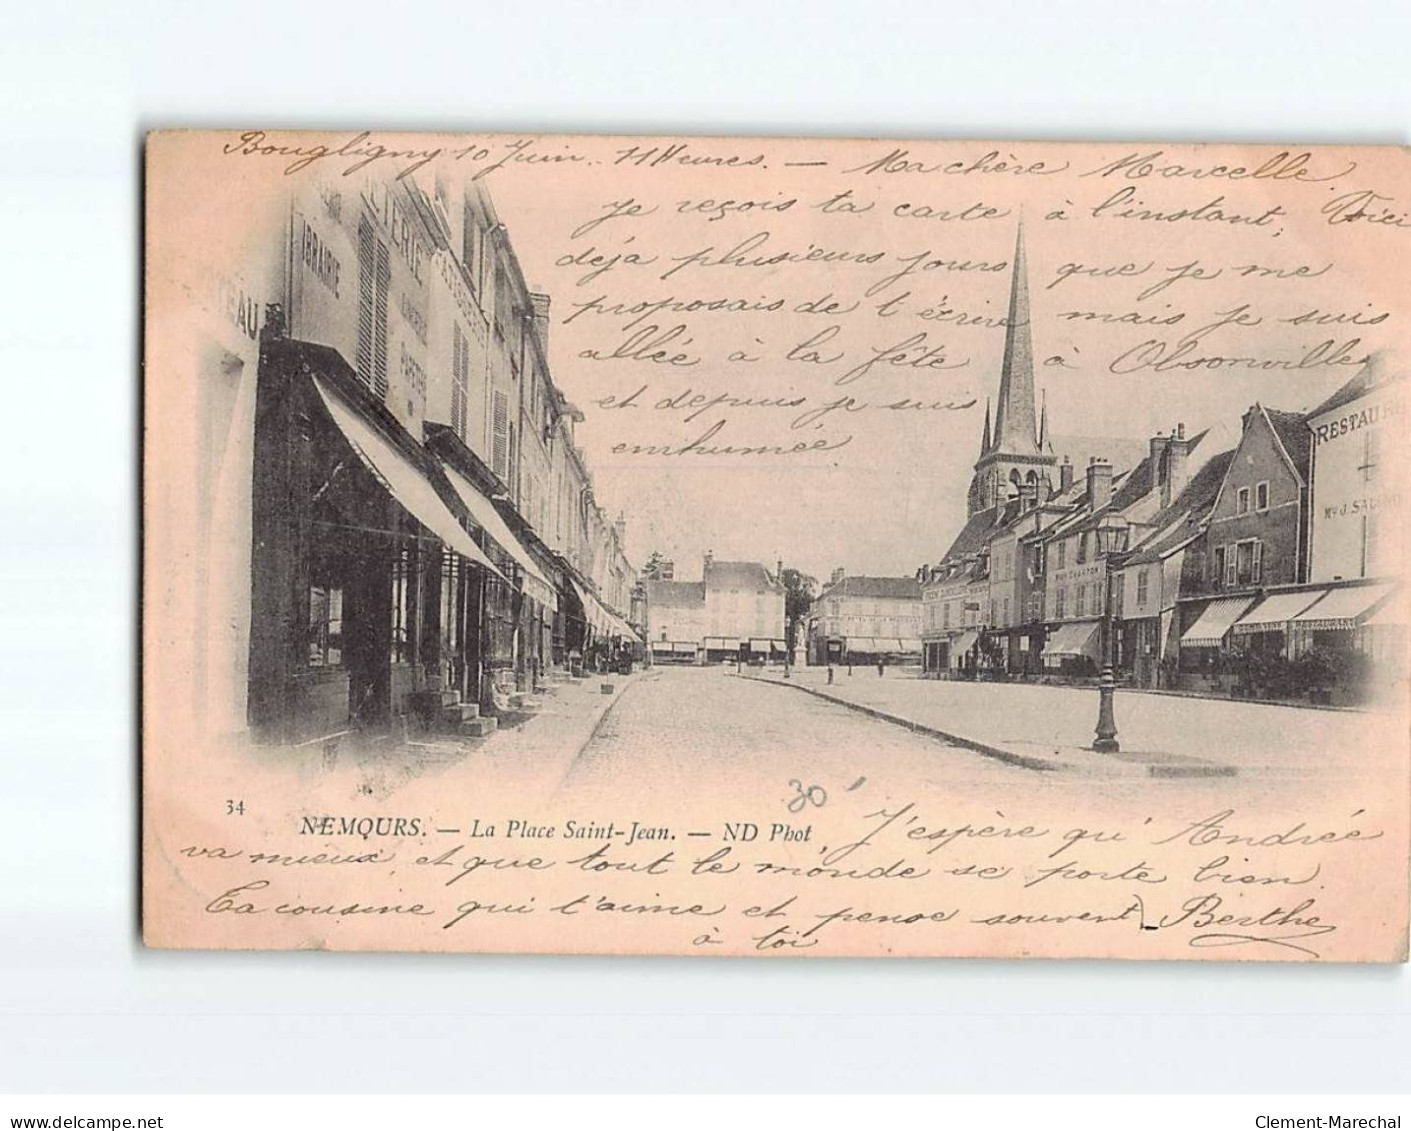 Bougligny 10 Juin. 11 Heures. — Ma chère Marcelle.
Je reçois ta carte à l'instant, Voici
déja plusieurs jours que je me
proposais de t'écrire mais je suis
allée à la fête à Obsonville
et depuis je suis
enrhumée
LIBRAIRIE
PAPETERIE
EAU
RESTAU
34
30
NEMOURS. — La Place Saint-Jean. — ND Phot
J'espère qu'Andrée
va mieux et que tout le monde se porte bien.
Ta cousine qui t'aime et pense souvent Berthe
à toi
www.delcampe.net
Clement-Marechal